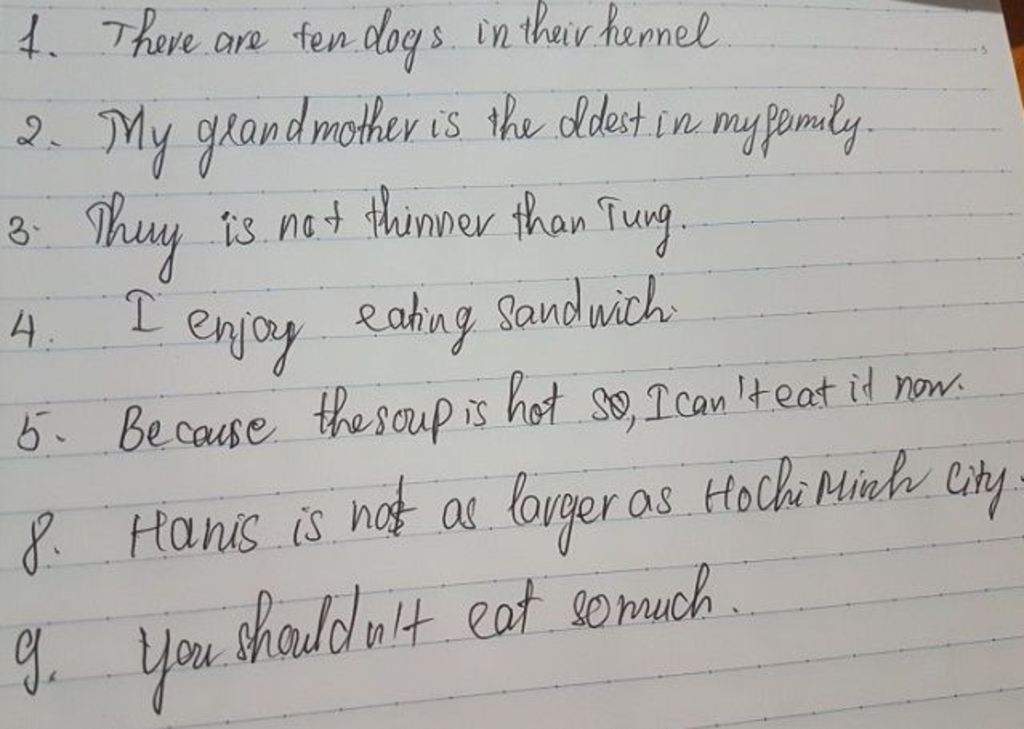 1. There are ten dogs in their hennel
2. My grandmother is the oldest in my family.
3. Thuy is not thinner than Tung.
4. I enjoy eating sandwich.
5. Because the soup is hot so, I can't eat it now.
8. Hanis is not as larger as Ho Chi Minh City.
9. You shouldn't eat so much.